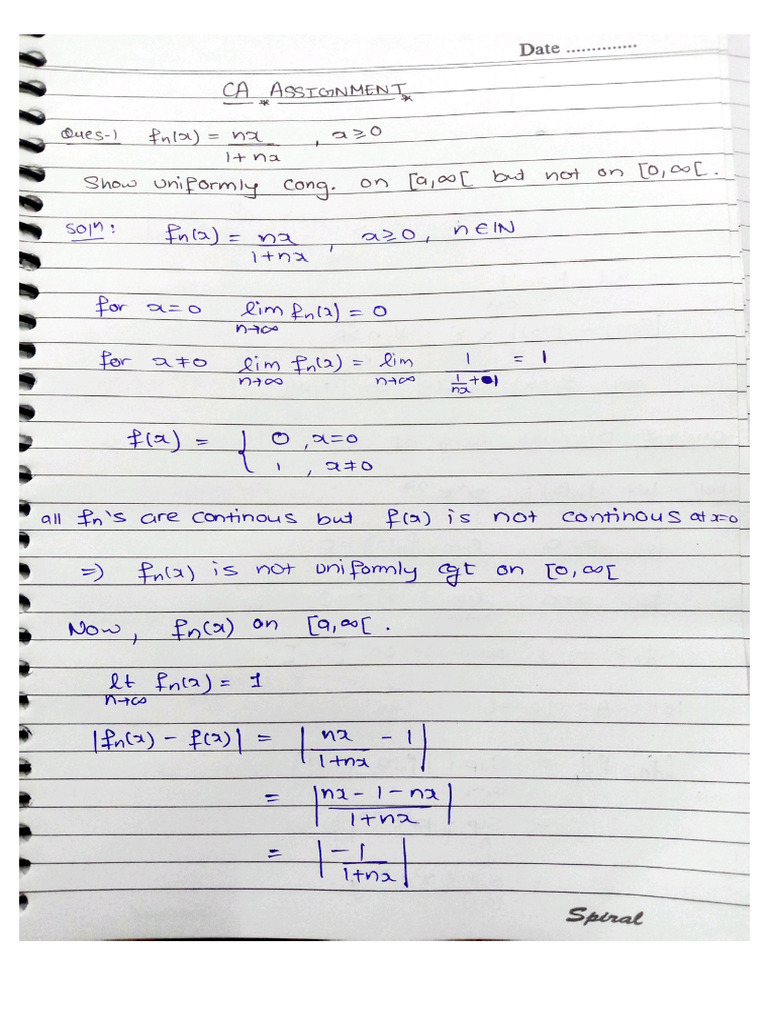 Date ..............
CA ASSIGNMENT
Ques-1 fn(x) = nx / 1+nx , x≥0
Show uniformly cong. on [a,∞[ but not on [0,∞[.
Soln: fn(x) = nx / 1+nx , x≥0, n∈IN
for x=0 lim n→∞ fn(x) = 0
for x≠0 lim n→∞ fn(x) = lim n→∞ 1 / (1/nx + 1) = 1
f(x) = { 0 , x=0
1 , x≠0
all fn's are continous but f(x) is not continous at x=0
=> fn(x) is not uniformly cgt on [0,∞[
Now, fn(x) on [a,∞[.
lt n→∞ fn(x) = 1
|fn(x) - f(x)| = | nx / 1+nx - 1 |
= | nx - 1 - nx / 1+nx |
= | -1 / 1+nx |
Spiral